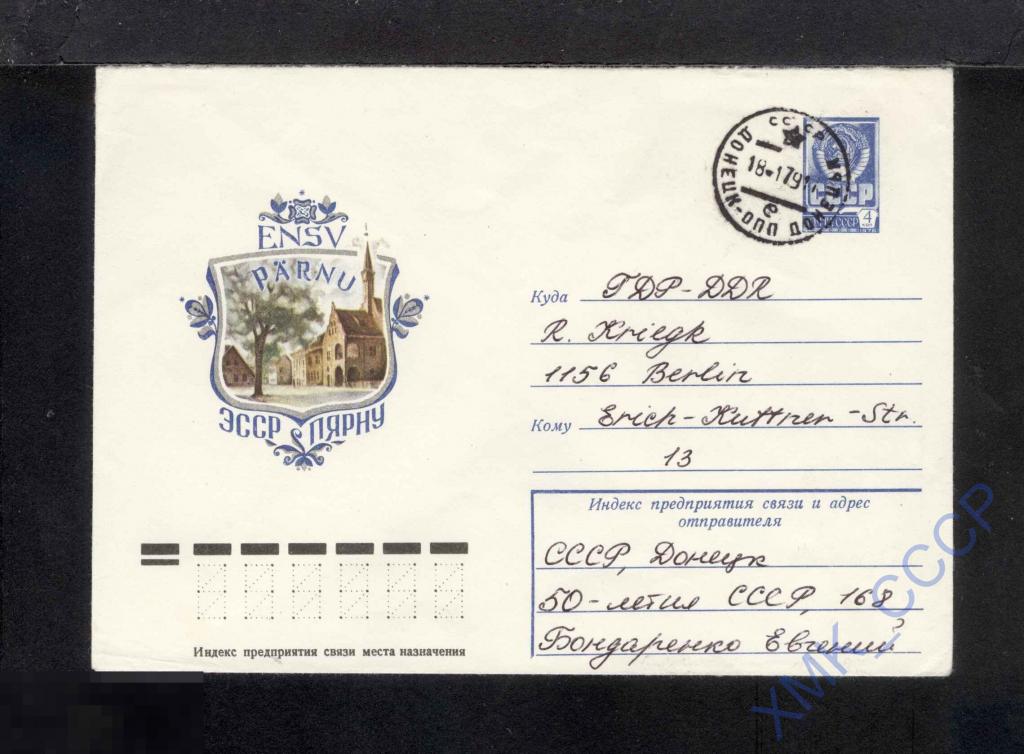 ENSV
PÄRNU
ЭССР ПЯРНУ
СССР
ДОНЕЦК-ППО
18-1791
е
СССР
ПОЧТА СССР
4
Куда ГДР-DDR
R. Kriegk
1156 Berlin
Кому Erich-Kuttner-Str.
13
Индекс предприятия связи и адрес
отправителя
СССР, Донецк
50-летия СССР, 168
Бондаренко Евгений
Индекс предприятия связи места назначения
ХМК_СССР